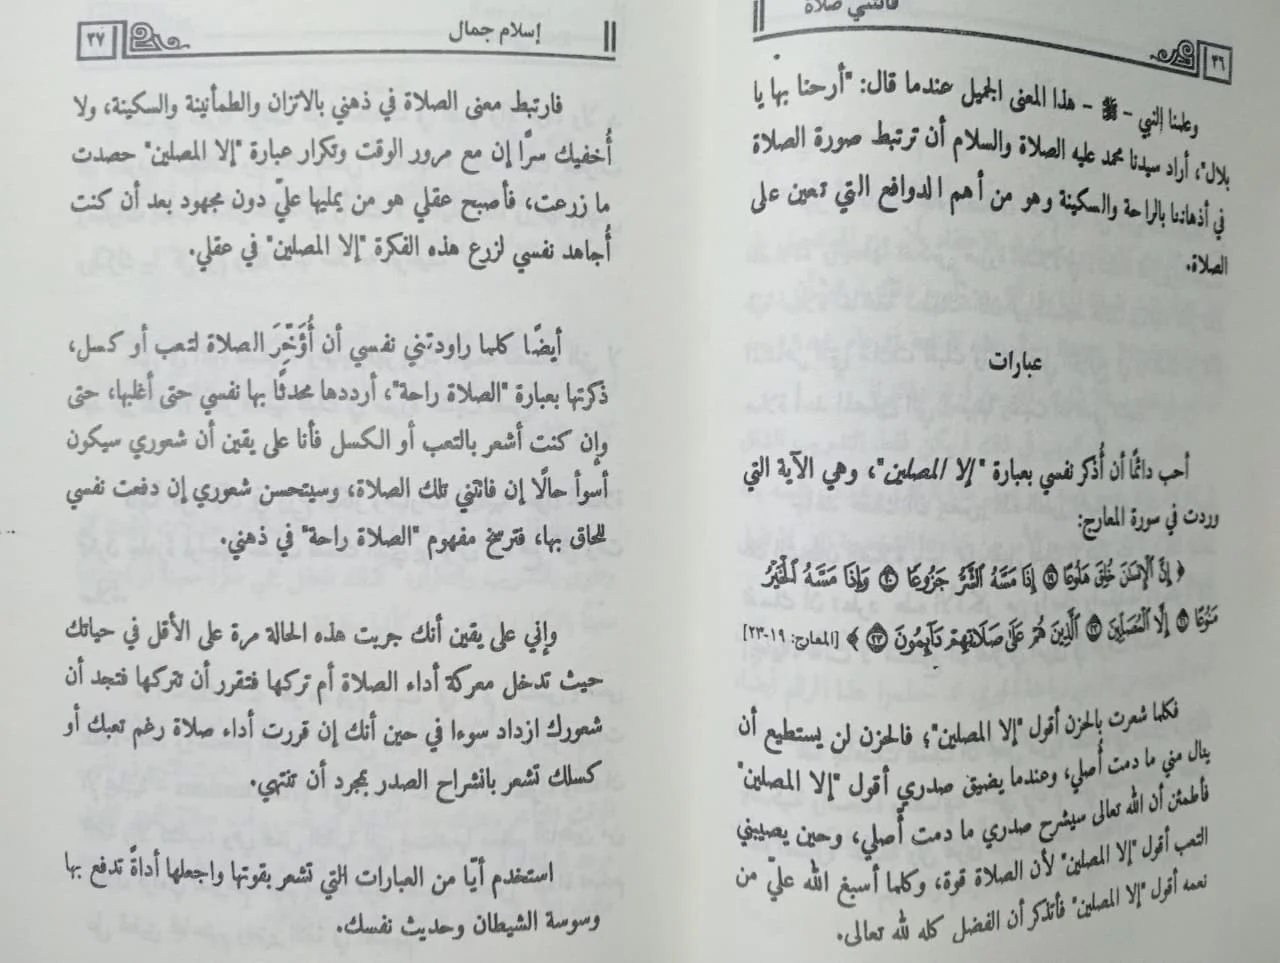 فاتتني صلاة
٣٦
وعلمنا النبي - ﷺ - هذا المعنى الجميل عندما قال: "أرحنا بها يا
بلال"، أراد سيدنا محمد عليه الصلاة والسلام أن ترتبط صورة الصلاة
في أذهاننا بالراحة والسكينة وهو من أهم الدوافع التي تعين على
الصلاة.
عبارات
أحب دائمًا أن أُذكر نفسي بعبارة "إلا المصلين"، وهي الآية التي
وردت في سورة المعارج:
﴿ إِنَّ ٱلْإِنسَٰنَ خُلِقَ هَلُوعًا ١٩ إِذَا مَسَّهُ ٱلشَّرُّ جَزُوعًا ٢٠ وَإِذَا مَسَّهُ ٱلْخَيْرُ
مَنُوعًا ٢١ إِلَّا ٱلْمُصَلِّينَ ٢٢ ٱلَّذِينَ هُمْ عَلَىٰ صَلَاتِهِمْ دَآئِمُونَ ٢٣ ﴾ [المعارج: ١٩-٢٣]
فكلما شعرت بالحزن أقول "إلا المصلين"؛ فالحزن لن يستطيع أن
ينال مني ما دمت أُصلي، وعندما يضيق صدري أقول "إلا المصلين"
فأطمئن أن الله تعالى سيشرح صدري ما دمت أُصلي، وحين يصيبني
التعب أقول "إلا المصلين" لأن الصلاة قوة، وكلما أسبغ الله عليّ من
نعمه أقول "إلا المصلين" فأتذكر أن الفضل كله لله تعالى.
إسلام جمال
٣٧
فارتبط معنى الصلاة في ذهني بالاتزان والطمأنينة والسكينة، ولا
أُخفيك سرًا إن مع مرور الوقت وتكرار عبارة "إلا المصلين" حصدت
ما زرعت، فأصبح عقلي هو من يمليها عليّ دون مجهود بعد أن كنت
أُجاهد نفسي لزرع هذه الفكرة "إلا المصلين" في عقلي.
أيضًا كلما راودتني نفسي أن أُؤَخِّرَ الصلاة لتعب أو كسل،
ذكرتها بعبارة "الصلاة راحة"، أرددها محدثًا بها نفسي حتى أغلبها، حتى
وإن كنت أشعر بالتعب أو الكسل فأنا على يقين أن شعوري سيكون
أسوأ حالًا إن فاتتني تلك الصلاة، وسيتحسن شعوري إن دفعت نفسي
للحاق بها، فترسخ مفهوم "الصلاة راحة" في ذهني.
وإني على يقين أنك جربت هذه الحالة مرة على الأقل في حياتك
حيث تدخل معركة أداء الصلاة أم تركها فتقرر أن تتركها فتجد أن
شعورك ازداد سوءا في حين أنك إن قررت أداء صلاة رغم تعبك أو
كسلك تشعر بانشراح الصدر بمجرد أن تنتهي.
استخدم أيًا من العبارات التي تشعر بقوتها واجعلها أداةً تدفع بها
وسوسة الشيطان وحديث نفسك.